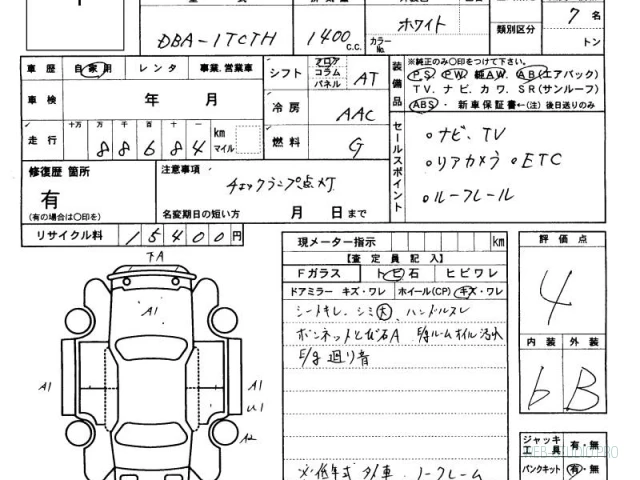 ホワイト
7 名
DBA-1TCTH
1400 c.c.
カラーNo.
類別区分
トン
車歴 自家用 レンタ 事業.営業車
シフト フロア コラム パネル AT
装備品
※純正のみ〇印をつけて下さい。
PS. PW. 純AW. AB(エアバック)
TV. ナビ. カワ. SR(サンルーフ)
ABS・新車保証書←(注) 後日送りのみ
車検 年 月
冷房 AAC
走行 十万 万 千 百 十 一
88684 km マイル
燃料 G
セールスポイント
。ナビ、TV
。リアカメラ 。ETC
。ルーフレール
修復歴 箇所
有
(有の場合は〇印を)
注意事項
チェックランプ点灯
名変期日の短い方 月 日まで
リサイクル料 15400円
下A
A1
A1
A1
U1
A2
現メーター指示 km
【査定員記入】
Fガラス トビ石 ヒビワレ
ドアミラー キズ・ワレ ホイール(CP) キズ・ワレ
シートキレ、シミ大 ハンドルスレ
ボンネットとび石A E/gルームオイル汚れ
E/g廻り音
評価点
4
内装 外装
b B
ジャッキ 工具 有・無
パンクキット 有・無